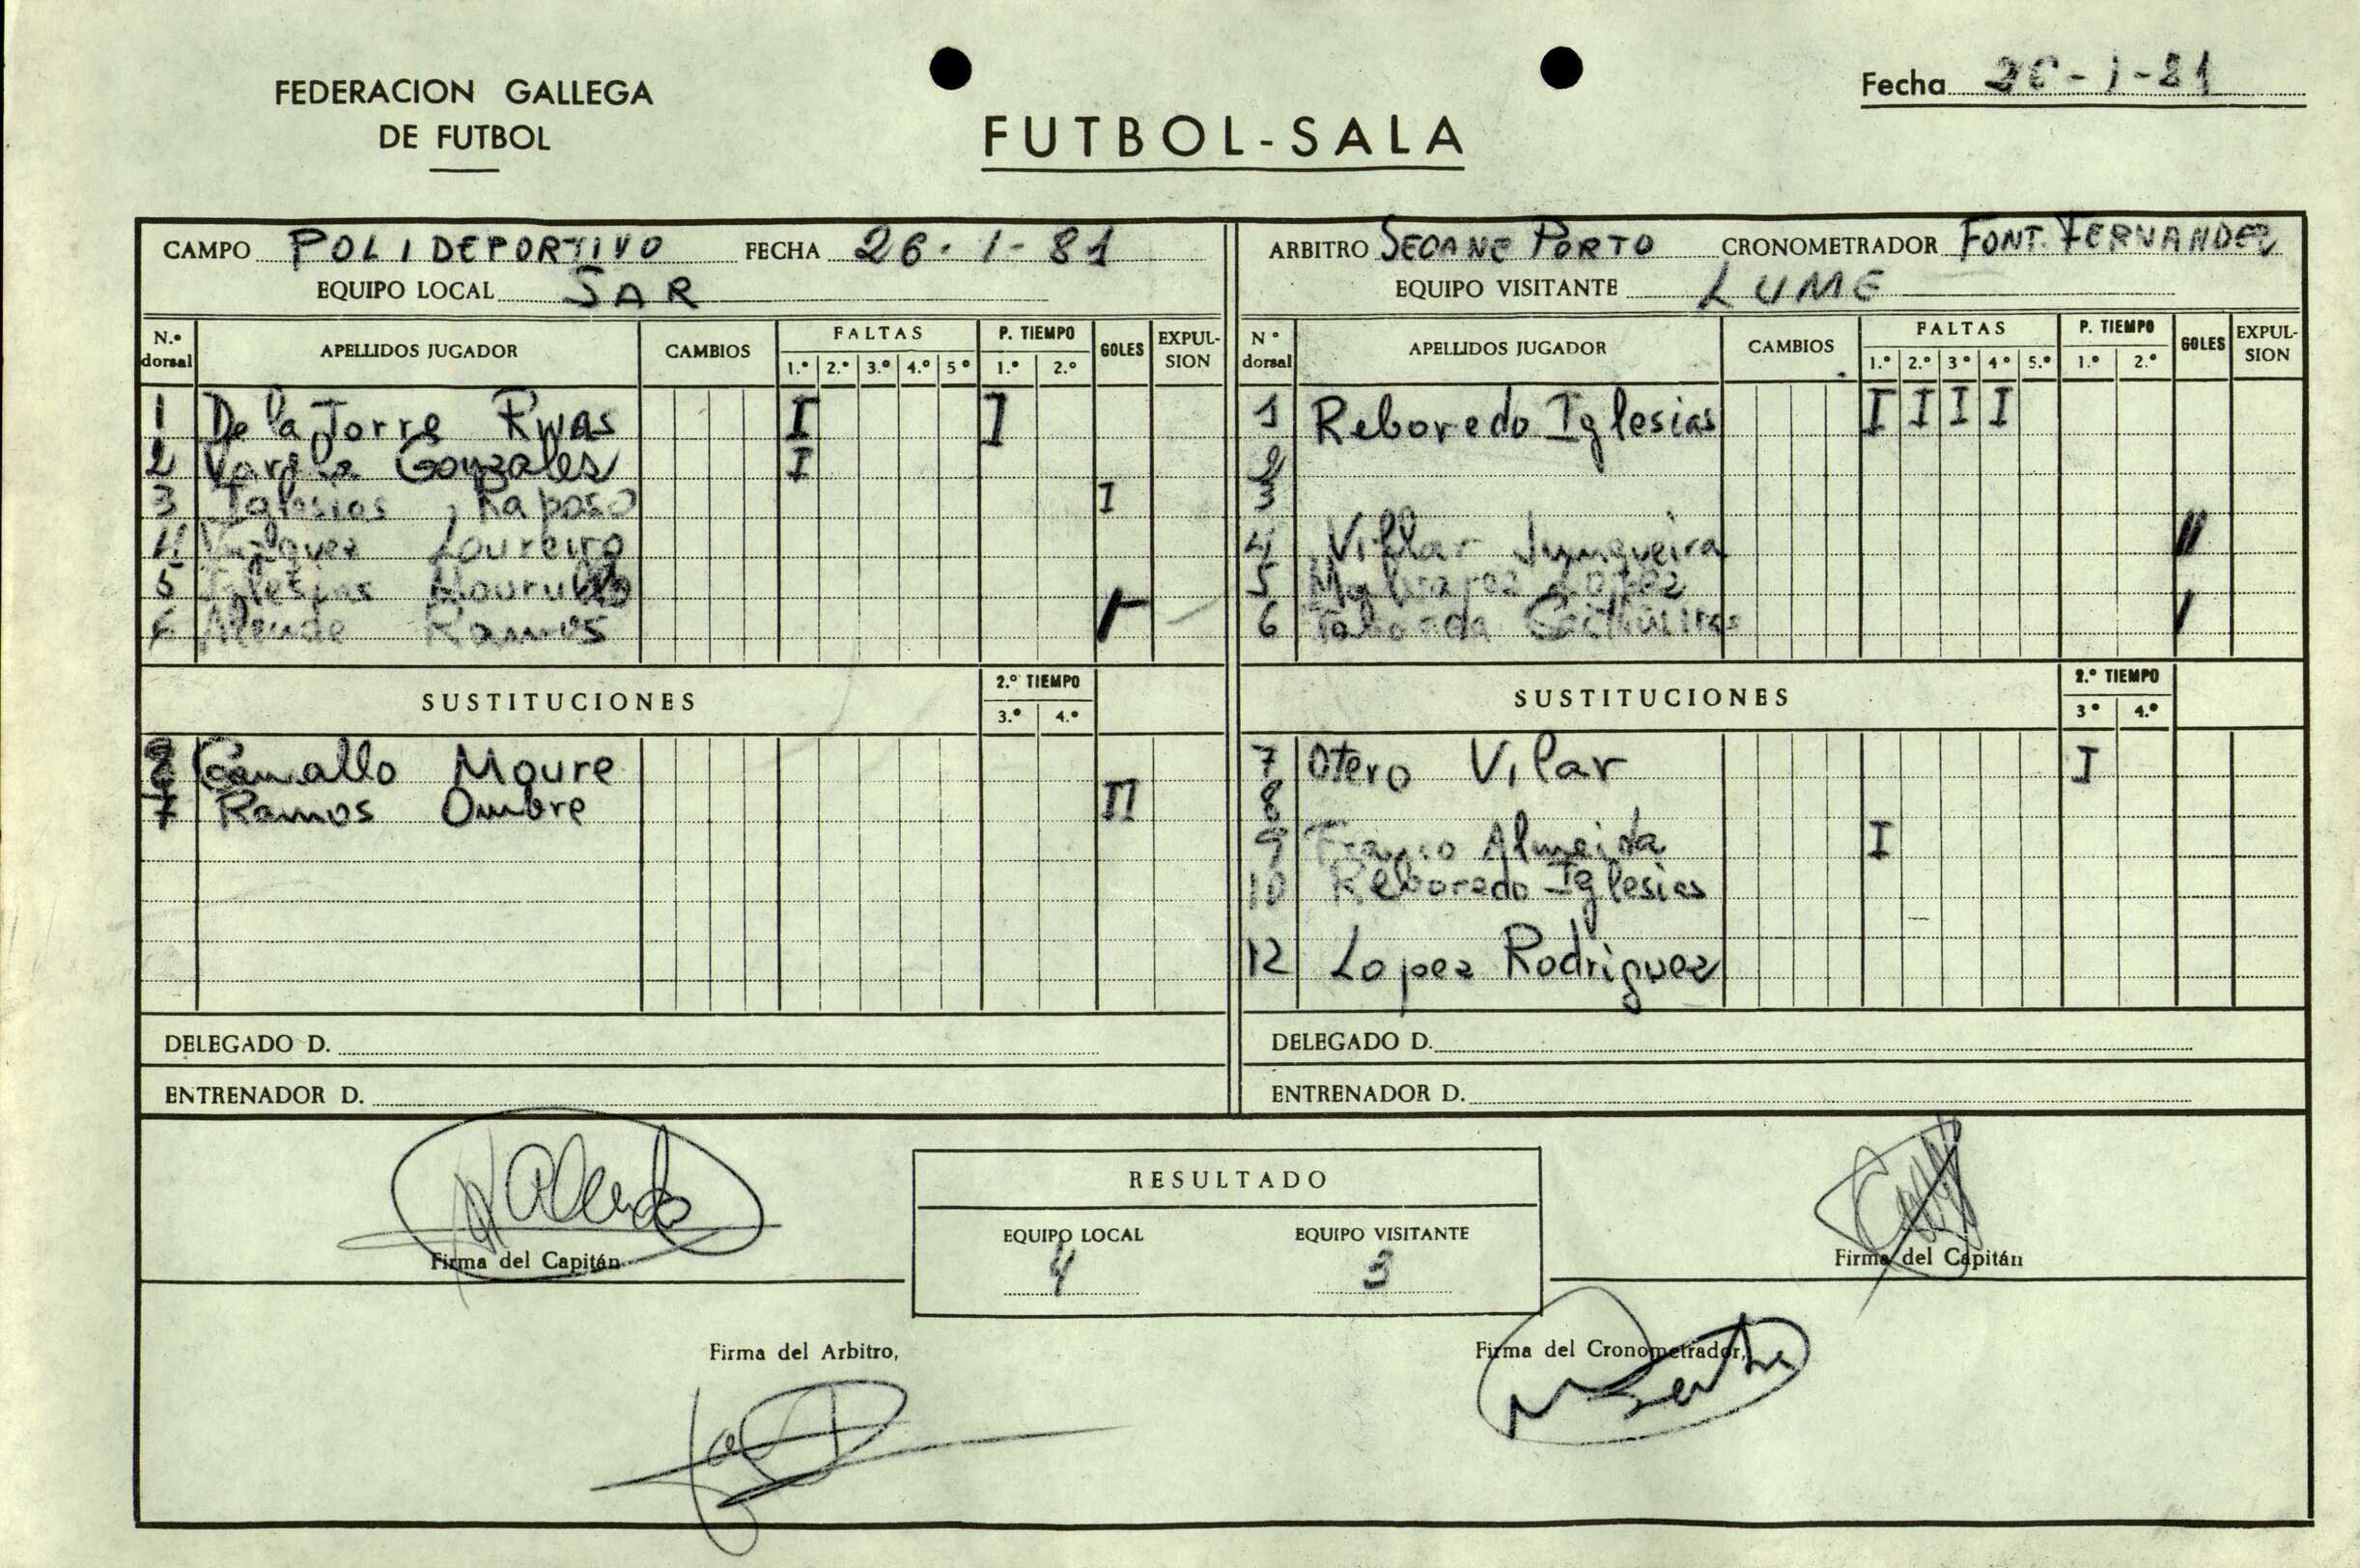 FEDERACION GALLEGA
DE FUTBOL
FUTBOL-SALA
Fecha 26-1-81
CAMPO POLIDEPORTIVO FECHA 26-1-81
EQUIPO LOCAL SAR
ARBITRO SEOANE PORTO CRONOMETRADOR FONT. FERNANDEZ
EQUIPO VISITANTE LUME
N.º dorsal APELLIDOS JUGADOR CAMBIOS FALTAS 1.º 2.º 3.º 4.º 5º P. TIEMPO 1.º 2.º GOLES EXPUL-SION
1 De la Torre Rivas I I
2 Varela Gonzales I
3 Iglesias Raposo I
4 Vazquez Loureiro
5 Iglesias Mourullo
6 Alende Ramos I
SUSTITUCIONES 2.º TIEMPO 3.º 4.º
8 Moure
7 Ramos Ombre II
DELEGADO D.
ENTRENADOR D.
Nº dorsal APELLIDOS JUGADOR CAMBIOS FALTAS 1.º 2.º 3º 4º 5.º P. TIEMPO 1.º 2.º GOLES EXPUL-SION
1 Reboredo Iglesias I I I I
2
3
4 Villar Junqueira II
5 Lopez
6 Taboada I
SUSTITUCIONES 2.º TIEMPO 3º 4.º
7 Otero Vilar I
8
9 Franco Almeida I
10 Reboredo Iglesias
12 Lopez Rodriguez
DELEGADO D.
ENTRENADOR D.
Firma del Capitán
RESULTADO
EQUIPO LOCAL EQUIPO VISITANTE
4 3
Firma del Capitán
Firma del Arbitro,
Firma del Cronometrador,